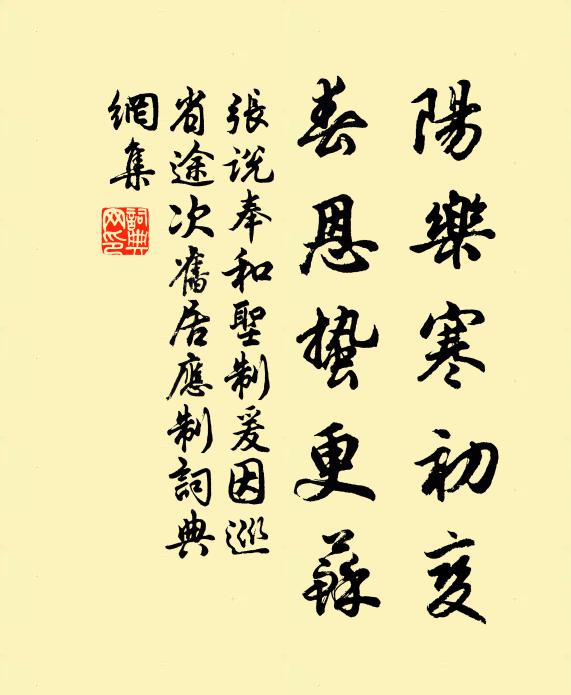 陽樂寒初变
春恩蟄更蘇
張説奉和聖制爰因巡
省途次舊居應制詞典
網集
詞典網印